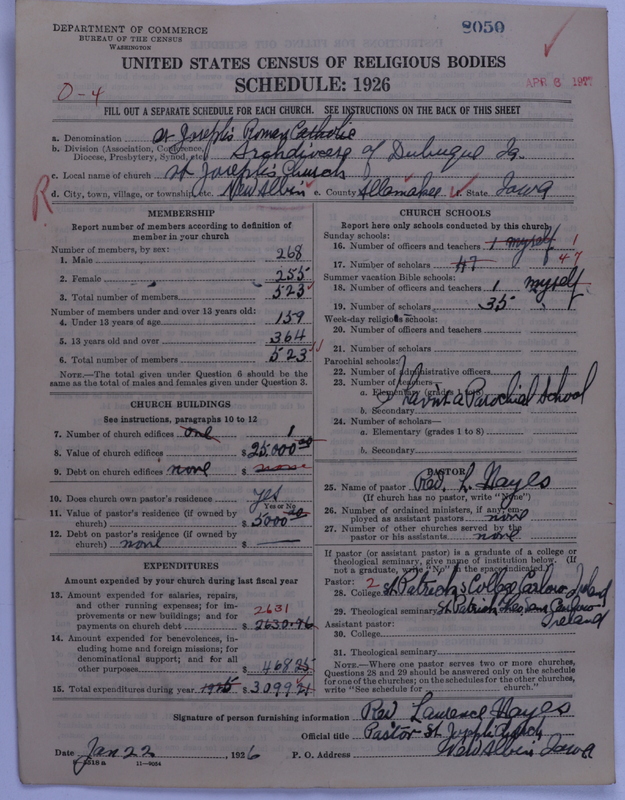 DEPARTMENT OF COMMERCE
BUREAU OF THE CENSUS
WASHINGTON
8050
UNITED STATES CENSUS OF RELIGIOUS BODIES
SCHEDULE: 1926
O-4
APR 8 1927
FILL OUT A SEPARATE SCHEDULE FOR EACH CHURCH. SEE INSTRUCTIONS ON THE BACK OF THIS SHEET
a. Denomination St Joseph's Roman Catholic
b. Division (Association, Conference, Diocese, Presbytery, Synod, etc.) Archdiocese of Dubuque Ia.
c. Local name of church St Joseph's Church
R
d. City, town, village, or township, etc. New Albin e. County Allamakee f. State Iowa
MEMBERSHIP
Report number of members according to definition of member in your church
Number of members, by sex:
1. Male 268
2. Female 255
3. Total number of members 523
Number of members under and over 13 years old:
4. Under 13 years of age 159
5. 13 years old and over 364
6. Total number of members 523
NOTE.—The total given under Question 6 should be the same as the total of males and females given under Question 3.
CHURCH BUILDINGS
See instructions, paragraphs 10 to 12
7. Number of church edifices one 1
8. Value of church edifices $25.000 00
9. Debt on church edifices none $ none
10. Does church own pastor's residence yes
Yes or No
11. Value of pastor's residence (if owned by church) $5000 00
12. Debt on pastor's residence (if owned by church) none $ —
EXPENDITURES
Amount expended by your church during last fiscal year
13. Amount expended for salaries, repairs, and other running expenses; for improvements or new buildings; and for payments on church debt $ 2630.96
2631
14. Amount expended for benevolences, including home and foreign missions; for denominational support; and for all other purposes $ 468 25
15. Total expenditures during year 1925 $ 3099 21
CHURCH SCHOOLS
Report here only schools conducted by this church
Sunday schools:
16. Number of officers and teachers 1 myself 1
17. Number of scholars 47 47
Summer vacation Bible schools:
18. Number of officers and teachers 1 myself
19. Number of scholars 35
Week-day religious schools:
20. Number of officers and teachers
21. Number of scholars
Parochial schools:
22. Number of administrative officers
23. Number of teachers—
a. Elementary (grades 1 to 8)
b. Secondary
a Parochial School
24. Number of scholars—
a. Elementary (grades 1 to 8)
b. Secondary
PASTOR
25. Name of pastor Rev. L. Hayes
(If church has no pastor, write "None")
26. Number of ordained ministers, if any, employed as assistant pastors none
27. Number of other churches served by the pastor or his assistants none
If pastor (or assistant pastor) is a graduate of a college or theological seminary, give name of institution below. (If not a graduate, write "No" in the space indicated.)
Pastor: 2
28. College St Patrick's College Carlow Ireland
29. Theological seminary St Patrick's Carlow Ireland
Assistant pastor:
30. College
31. Theological seminary
NOTE.—Where one pastor serves two or more churches, Questions 28 and 29 should be answered only on the schedule for one of the churches; on the schedules for the other churches, write "See schedule for church."
Signature of person furnishing information Rev. Laurence Hayes
Official title Pastor St Joseph Church
Date Jan 22, 1926 P. O. Address New Albin Iowa
11—9054